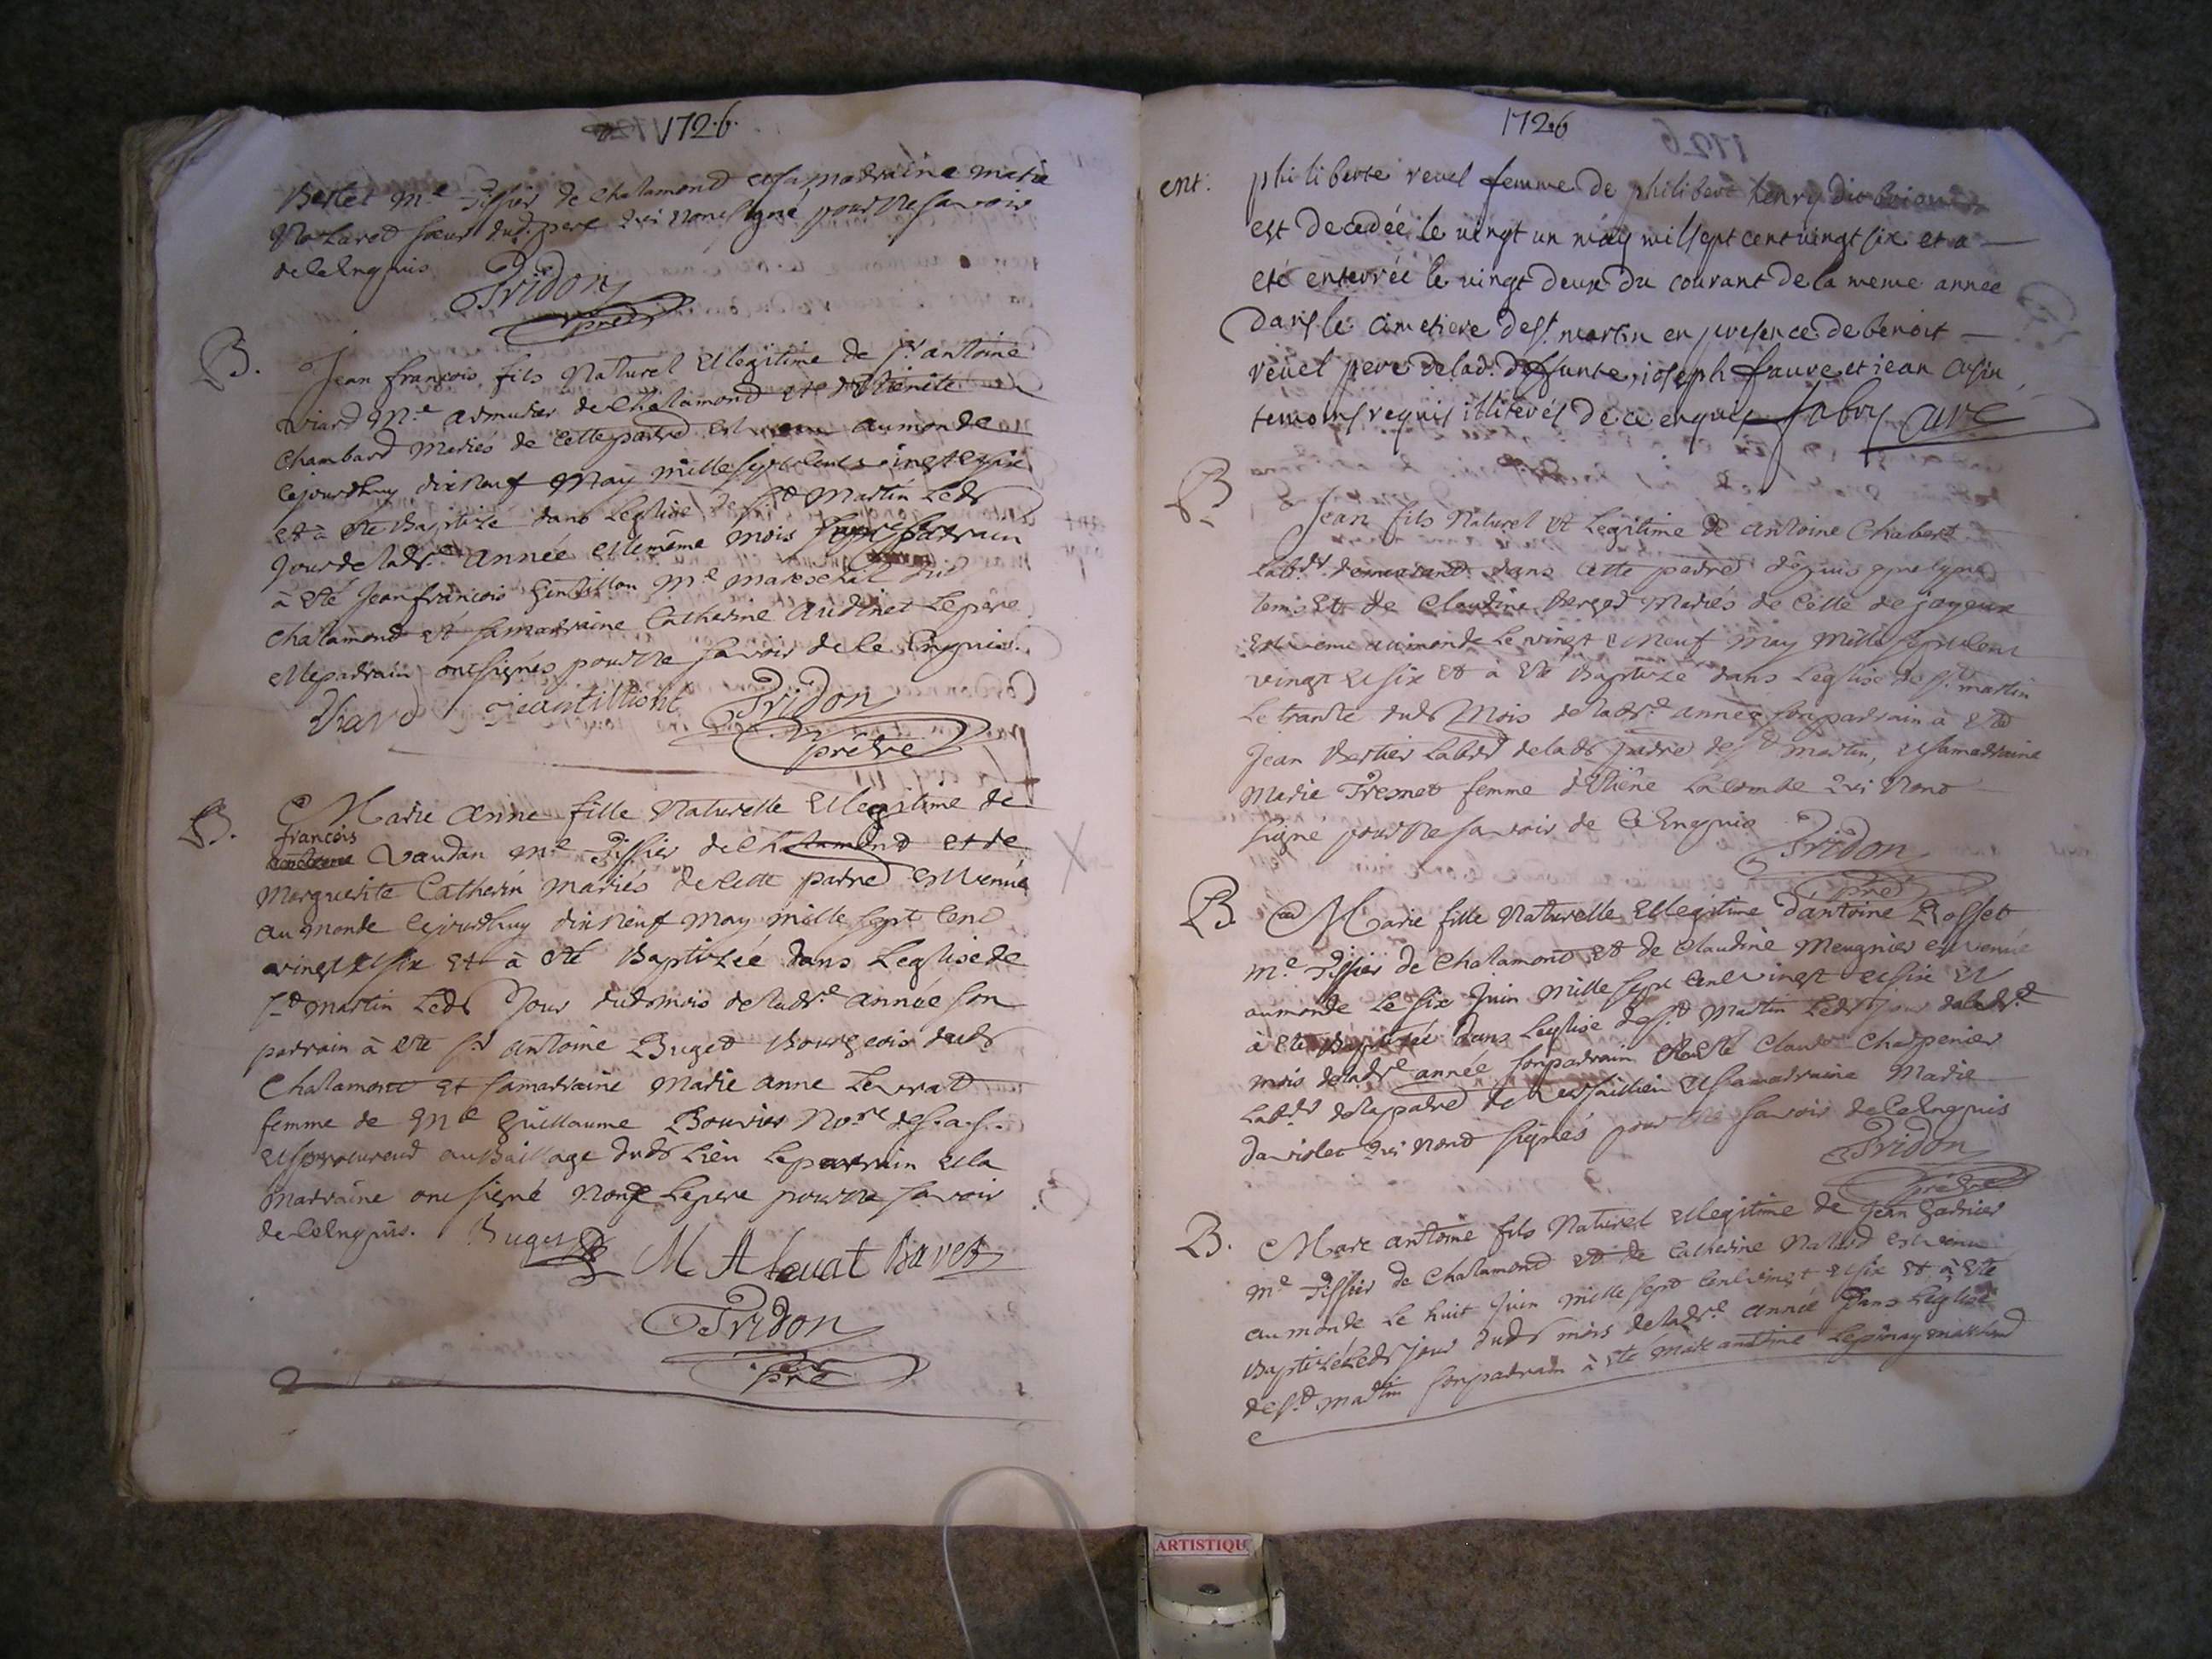 1726.
Bertet Me Tissier de Chalamond et sa madraine Marie
sœur dud. pere qui nont signé pour ne savoir
de ce Enquis
Pridon
pre
B. Jean françois fils Naturel et legitime de sr antoine
viard Me armurier de Chalamond et
Chambard Mariés de cette parre est venu au monde
cejourdhuy dix neuf May mille sept cent vingt et six
et à eté Baptizé dans Leglise de St Martin Ledt
Jour de ladte année et le même mois son padrain
à eté Jean françois Gentillon Me mareschal dud
chalamond et sa madraine Catherine Audinet Le pere
et le padrain ont signés pour ne savoir de ce Enquis.
Viard Jeantilliont Pridon
prêtre
B. Marie Anne fille Naturelle et legitime de
françois
Vaudan Me Tissier de Chalamond et de
Marguerite Catherin mariés de cette parre est venue
au monde cejourdhuy dix neuf may mille sept cent
vingt et six et à eté Baptizée dans Leglise de
St Martin Ledt Jour dudt mois de ladte année son
padrain à eté sr antoine Buget Bourgeois dudt
Chalamont et sa madraine Marie anne Levrat
femme de Me Guillaume Bouvier Nore de s.a.s.
et procureur au Bailliage dudt Lieu Le padrain et la
madraine ont signé non Le pere pour ne savoir
de ce Enquis. Buget M A levat Bavet
Pridon
pre
1726
ent. philiberte revel femme de philibert henry dit
est decedée le vingt un may mil sept cent vingt six et a
eté enterrée le vingt deux du courant de la meme année
dans le cimetiere de st. martin en presence de benoit
revel pere de lad. deffunte, joseph fauvre et jean
temoins requis illiterés de ce enquis fabry curé
B Jean fils Naturel et Legitime de antoine Chabert
Labdr demeurant dans cette parre depuis quelque
tems et de Claudine Berger Mariés de celle de joyeux
est venu au monde Le vingt neuf May Mille sept cent
vingt et six et à eté Baptizé dans Leglise de St martin
Le trante dudt Mois de ladte année son padrain à eté
Jean Bertier Labdr de ladt parre de st martin, et sa madraine
Marie Fremet femme Lacombe qui nont
signé pour ne savoir de ce Enquis
Pridon
pre
B Marie fille Naturelle et legitime dantoine Rosset
Me Tissier de Chalamond et de Claudine Meugnier est venue
au monde Le six Juin Mille sept cent vingt et six et
à eté Baptizée dans Leglise de st. Martin Ledt Jour de ladte
mois de ladte année son padrain à eté Claude Charpenier
Labdr de la parre de Versaillieu et sa madraine Marie
daviolet qui nont signés pour ne savoir de ce Enquis
Pridon
prêtre
B. Marc antoine fils Naturel et legitime de Jean Garnier
Me Tissier de Chalamond et de Catherine Nallard est venu
au monde Le huit Juin mille sept cent vingt et six et à eté
Baptizé Ledt jour dudt mois de ladte année dans Leglise
de st. martin son padrain à eté Marc antoine Lepinay marchand
ARTISTIQU